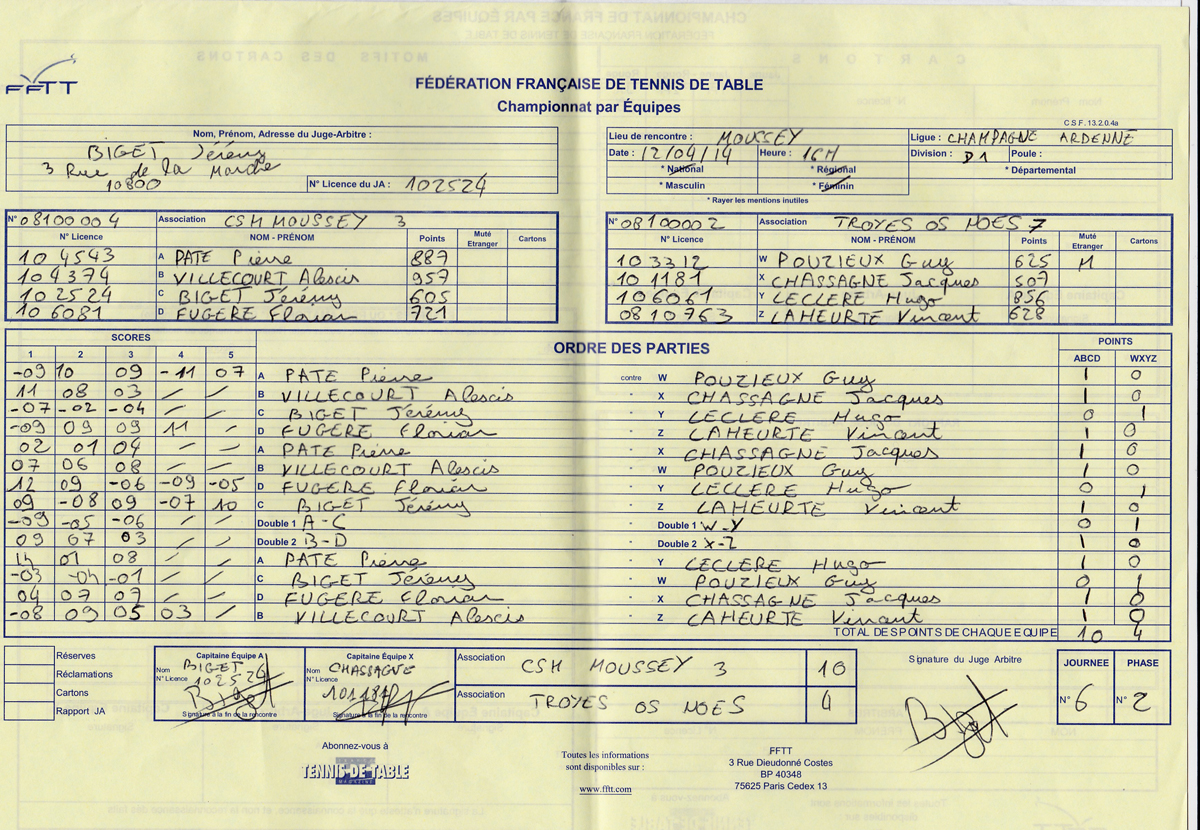 FFTT
FÉDÉRATION FRANÇAISE DE TENNIS DE TABLE
Championnat par Équipes
C.S.F. 13.2.0.4a
Nom, Prénom, Adresse du Juge-Arbitre :
BIGET Jérémy
3 Rue de la Marche
10800
N° Licence du JA : 102524
Lieu de rencontre : MOUSSEY
Ligue : CHAMPAGNE ARDENNE
Date : 12/04/14 Heure : 16H
Division : D1 Poule :
* National * Régional * Départemental
* Masculin * Féminin
* Rayer les mentions inutiles
N° 08100004 Association CSH MOUSSEY 3
N° Licence NOM - PRÉNOM Points Muté Etranger Cartons
104543 A PATE Pierre 887
104374 B VILLECOURT Alexis 957
102524 C BIGET Jérémy 605
106081 D FUGERE Florian 721
N° 08100002 Association TROYES OS NOES 7
N° Licence NOM - PRÉNOM Points Muté Etranger Cartons
103312 W POUZIEUX Guy 625 M
101181 X CHASSAGNE Jacques 507
106061 Y LECLERE Hugo 856
0810763 Z LAHEURTE Vincent 628
SCORES ORDRE DES PARTIES POINTS
1 2 3 4 5 ABCD WXYZ
-09 10 09 -11 07 A PATE Pierre contre W POUZIEUX Guy 1 0
11 08 03 / / B VILLECOURT Alexis " X CHASSAGNE Jacques 1 0
-07 -02 -04 / / C BIGET Jérémy " Y LECLERE Hugo 0 1
-09 09 09 11 / D FUGERE Florian " Z LAHEURTE Vincent 1 0
02 01 04 / / A PATE Pierre " X CHASSAGNE Jacques 1 0
07 06 08 / / B VILLECOURT Alexis " W POUZIEUX Guy 1 0
12 09 -06 -09 -05 D FUGERE Florian " Y LECLERE Hugo 0 1
09 -08 09 -07 10 C BIGET Jérémy " Z LAHEURTE Vincent 1 0
-09 -05 -06 / / Double 1 A-C " Double 1 W-Y 0 1
09 07 03 / / Double 2 B-D " Double 2 X-Z 1 0
14 01 08 / / A PATE Pierre " Y LECLERE Hugo 1 0
-03 -04 -01 / / C BIGET Jérémy " W POUZIEUX Guy 0 1
04 07 07 / / D FUGERE Florian " X CHASSAGNE Jacques 1 0
-08 09 05 03 / B VILLECOURT Alexis " Z LAHEURTE Vincent 1 0
TOTAL DES POINTS DE CHAQUE EQUIPE 10 4
Réserves
Réclamations
Cartons
Rapport JA
Capitaine Équipe A
Nom BIGET
N° Licence 102524
Biget
Signature à la fin de la rencontre
Capitaine Équipe X
Nom CHASSAGNE
N° Licence 101181
Signature à la fin de la rencontre
Association CSH MOUSSEY 3 10
Association TROYES OS NOES 4
Signature du Juge Arbitre
Biget
JOURNEE PHASE
N° 6 N° 2
Abonnez-vous à
TENNIS DE TABLE
Toutes les informations
sont disponibles sur :
www.fftt.com
FFTT
3 Rue Dieudonné Costes
BP 40348
75625 Paris Cedex 13